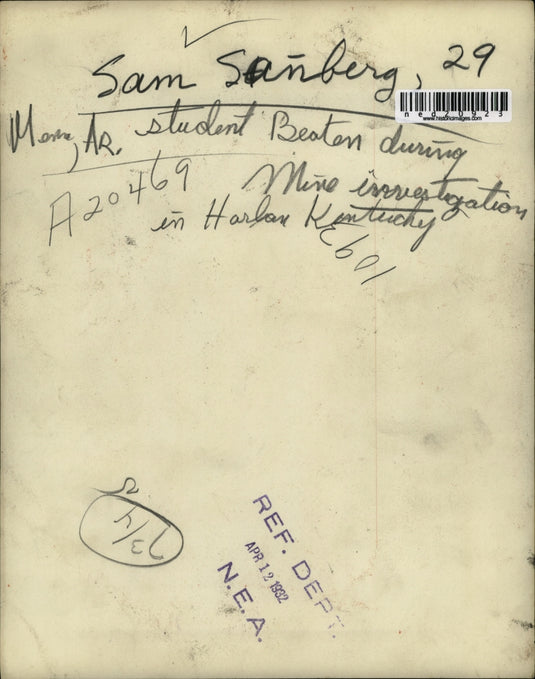 Sam Sanberg, 29
Mena, Ar. student Beaten during
Mine investigation
in Harlan Kentucky
A20469
ned00523
www.historicimages.com
REF. DEPT.
APR 12 1932
N.E.A.